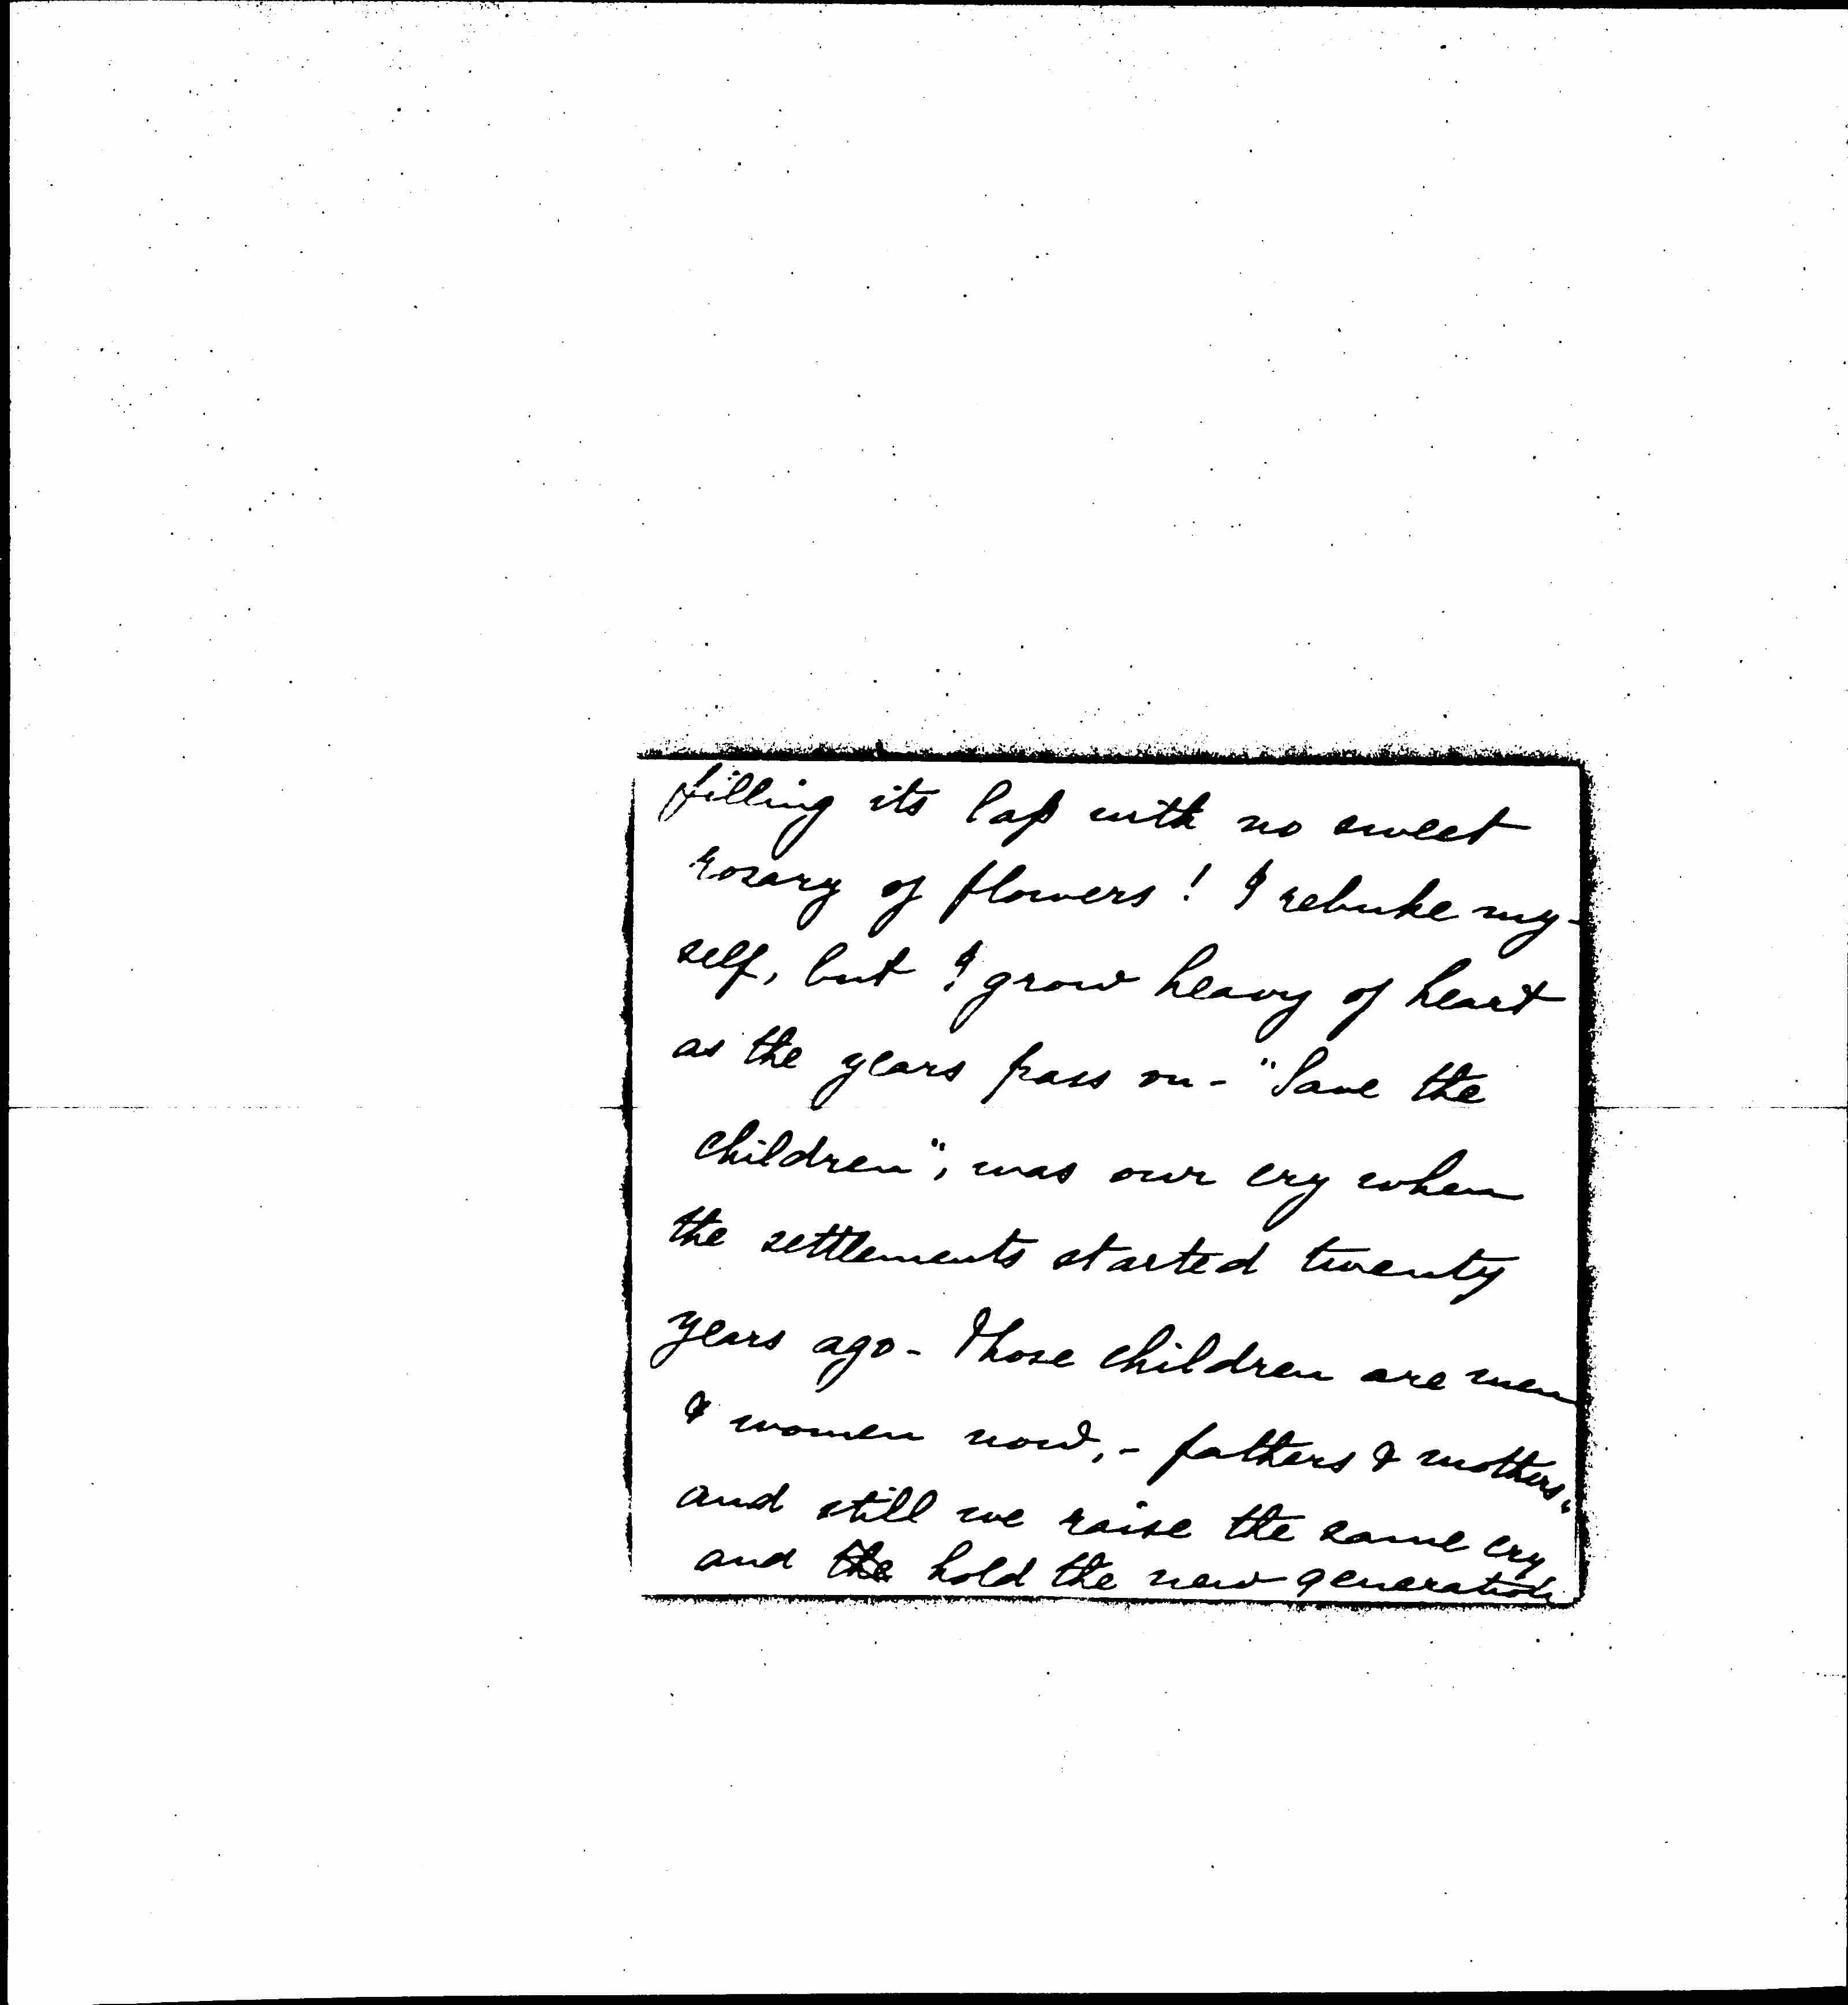 filling its lap with no sweet
rosary of flowers! I rebuke my-
self, but I grow heavy of heart
as the years pass on - "Save the
children", was our cry when
the settlements started twenty
years ago - Those children are men
& women now, - fathers & mothers -
and still we raise the same cry
and the hold the new generation